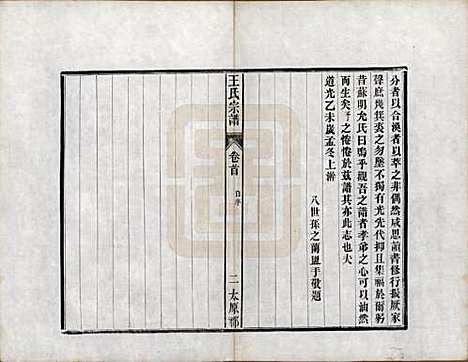 分者以合渙者以萃之非偶然咸思讀書修行振厥家
聲庶幾箕裘之勿墜不獨有光先代抑且集福於爾躬
昔蘇明允氏曰嗚乎觀吾之譜者孝弟之心可以油然
而生矣予之惓惓於茲譜其亦此志也夫
道光乙未歲孟冬上澣
八世孫之蘭盥手敬題
王氏宗譜
卷首
自序
二
太原郡